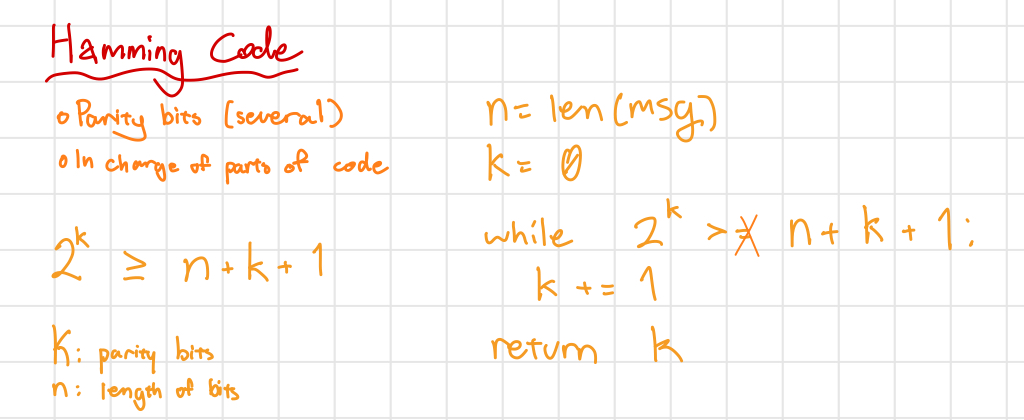 Hamming Code
o Parity bits (several)
o In charge of parts of code
2^k ≥ n + k + 1
K: parity bits
n: length of bits
n = len(msg)
k = 0
while 2^k > n + k + 1:
k += 1
return k